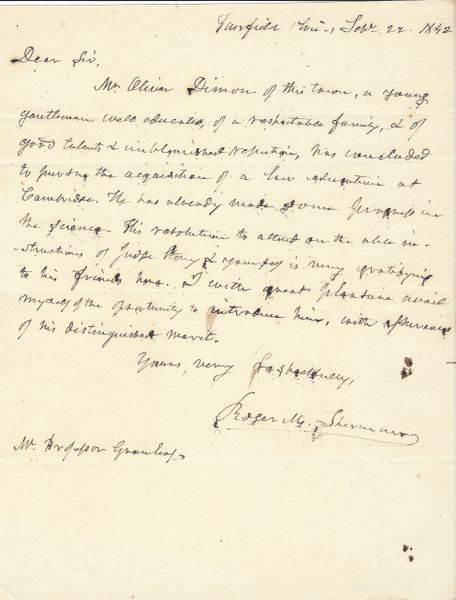 Fairfield Con., Sept. 22. 1842
Dear Sir,
Mr. Oliver Dimon of this town, a young
gentleman well educated, of a respectable family, & of
good talents & unblemished reputation, has concluded
to pursue the acquisition of a law education at
Cambridge. He has already made some progress in
the science. His resolution to attend on the able in-
-structions of Judge Story & yourself is very gratifying
to his friends here. I with great pleasure avail
myself of the opportunity to introduce him, with assurances
of his distinguished merit.
Yours, very respectfully,
Roger M. Sherman
Mr. Professor Greenleaf